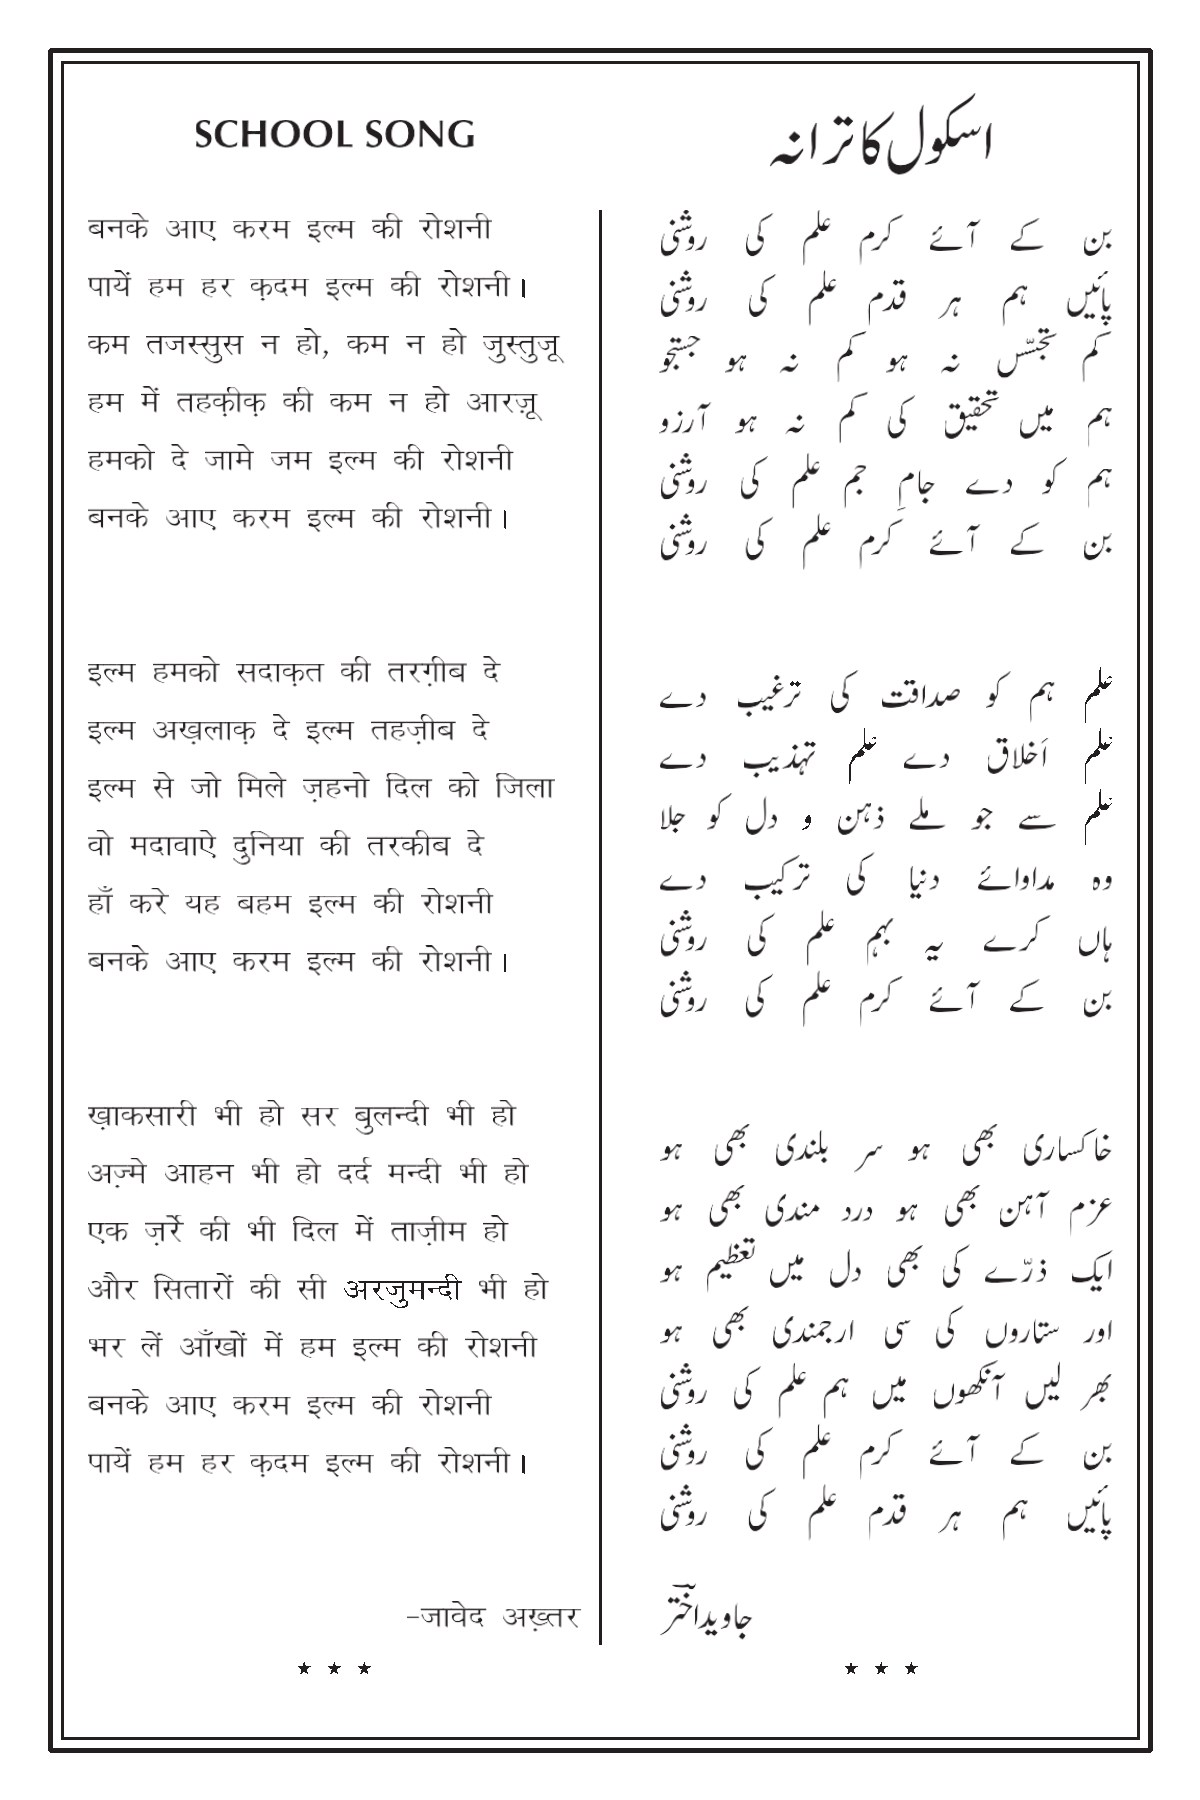 SCHOOL SONG
बनके आए करम इल्म की रोशनी
पायें हम हर क़दम इल्म की रोशनी।
कम तजस्सुस न हो, कम न हो जुस्तुजू
हम में तहक़ीक़ की कम न हो आरज़ू
हमको दे जामे जम इल्म की रोशनी
बनके आए करम इल्म की रोशनी।
इल्म हमको सदाक़त की तरग़ीब दे
इल्म अख़लाक़ दे इल्म तहज़ीब दे
इल्म से जो मिले ज़हनो दिल को जिला
वो मदावाऐ दुनिया की तरकीब दे
हाँ करे यह बहम इल्म की रोशनी
बनके आए करम इल्म की रोशनी।
ख़ाकसारी भी हो सर बुलन्दी भी हो
अज़्मे आहन भी हो दर्द मन्दी भी हो
एक ज़र्रे की भी दिल में ताज़ीम हो
और सितारों की सी अरजुमन्दी भी हो
भर लें आँखों में हम इल्म की रोशनी
बनके आए करम इल्म की रोशनी
पायें हम हर क़दम इल्म की रोशनी।
–जावेद अख़्तर
★ ★ ★
اسکول کا ترانہ
بن کے آئے کرم علم کی روشنی
پائیں ہم ہر قدم علم کی روشنی
کم تجسّس نہ ہو کم نہ ہو جستجو
ہم میں تحقیق کی کم نہ ہو آرزو
ہم کو دے جامِ جم علم کی روشنی
بن کے آئے کرم علم کی روشنی
علم ہم کو صداقت کی ترغیب دے
علم اَخلاق دے علم تہذیب دے
علم سے جو ملے ذہن و دل کو جلا
وہ مداوائے دنیا کی ترکیب دے
ہاں کرے یہ بہم علم کی روشنی
بن کے آئے کرم علم کی روشنی
خاکساری بھی ہو سر بلندی بھی ہو
عزم آہن بھی ہو درد مندی بھی ہو
ایک ذرّے کی بھی دل میں تعظیم ہو
اور ستاروں کی سی ارجمندی بھی ہو
بھر لیں آنکھوں میں ہم علم کی روشنی
بن کے آئے کرم علم کی روشنی
پائیں ہم ہر قدم علم کی روشنی
جاوید اختر
★ ★ ★